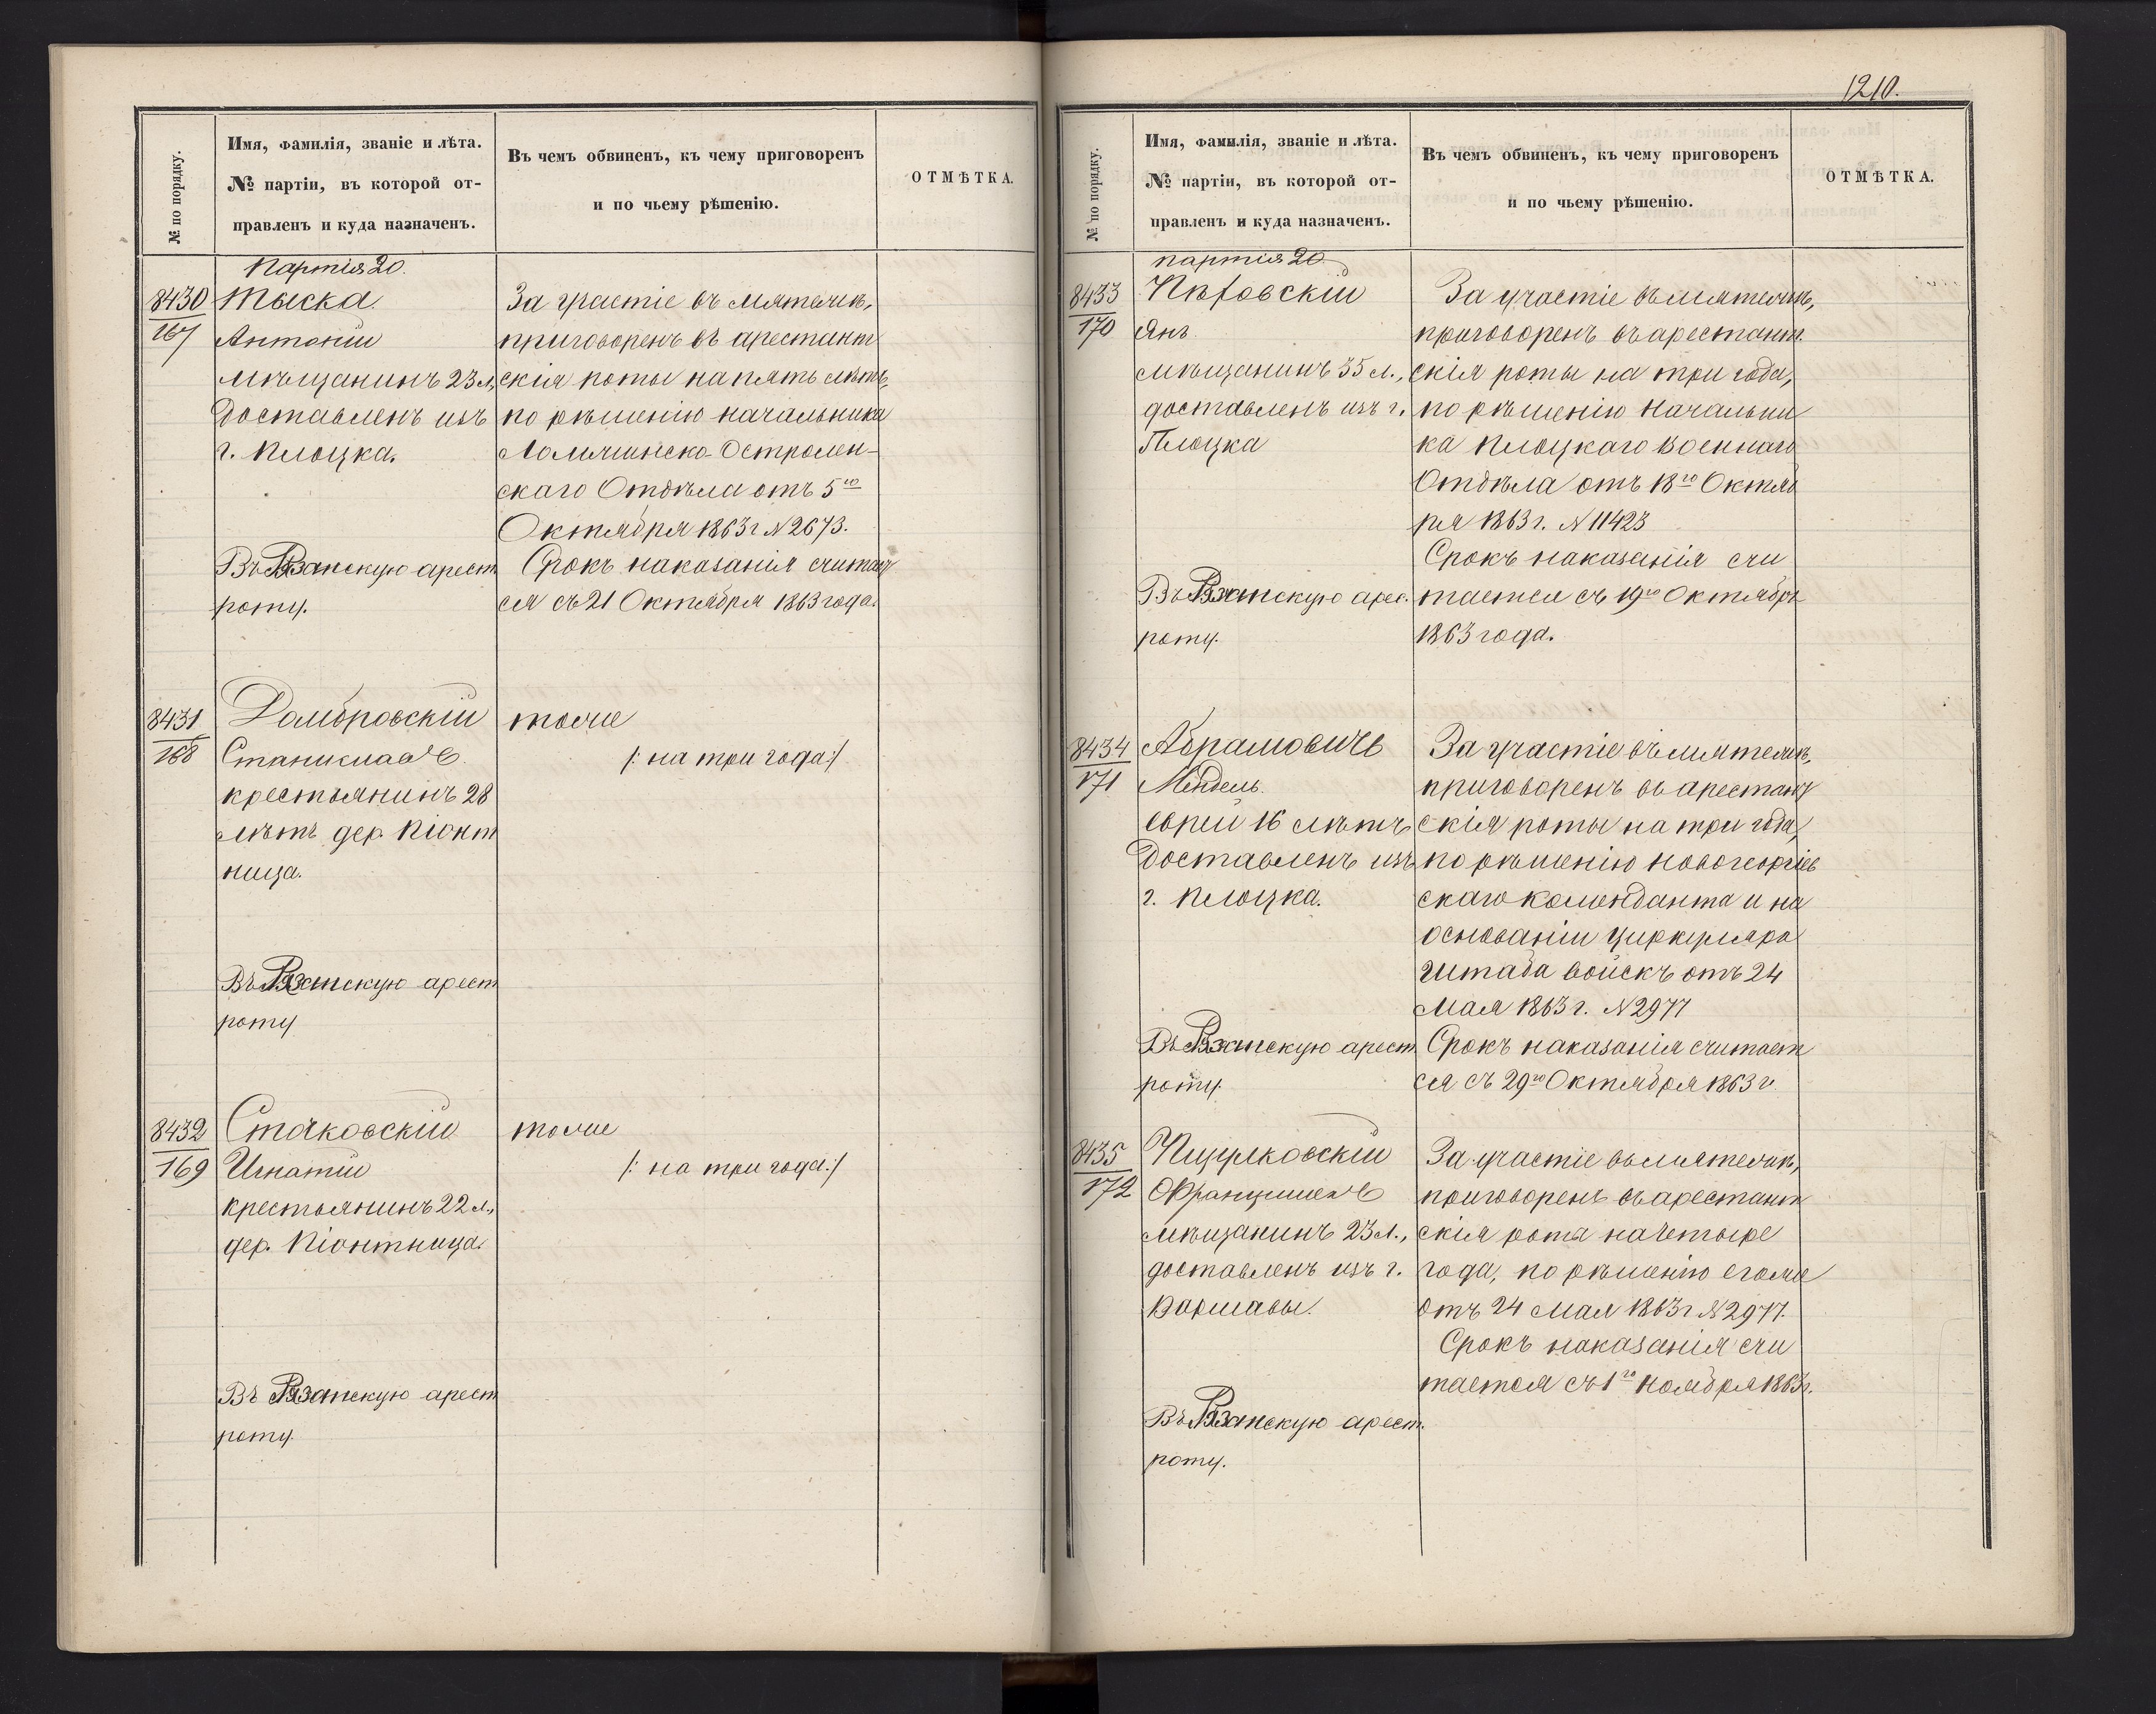 1210.
№ по порядку.
Имя, фамилія, званіе и лѣта.
№ партіи, въ которой от-
правленъ и куда назначенъ.
Въ чемъ обвиненъ, къ чему приговоренъ
и по чьему рѣшенію.
ОТМѢТКА.
Партія 20.
8430
167
Тыска
Антоній
мѣщанинъ 23 л,
доставленъ изъ
г. Плоцка.
Въ Рязанскую арест
роту.
За участіе въ мятежѣ,
приговоренъ въ арестант
скія роты на пять лѣтъ,
по рѣшенію начальника
Ломжинско-Остролен-
скаго Отдѣла отъ 5го
Октября 1863 г №2673.
Срокъ наказанія считает
ся съ 21 Октября 1863 года.
8431
168
Домбровскій
Станиславъ
крестьянинъ 28
лѣтъ дер. Піонт
ница.
Въ Рязанскую арест
роту
тоже
/: на три года :/
8432
169
Стаковскій
Игнатій
крестьянинъ 22 л.,
дер. Піонтница.
Въ Рязанскую арест
роту.
тоже
/: на три года :/
№ по порядку.
Имя, фамилія, званіе и лѣта.
№ партіи, въ которой от-
правленъ и куда назначенъ.
Въ чемъ обвиненъ, къ чему приговоренъ
и по чьему рѣшенію.
ОТМѢТКА.
партія 20.
8433
170
Янъ
мѣщанинъ 35 л.,
доставленъ изъ г.
Плоцка
Въ Рязанскую арес.
роту.
За участіе въ мятежѣ,
приговоренъ въ арестант.
скія роты на три года,
по рѣшенію Начальни
ка Плоцкаго Военнаго
Отдѣла отъ 18го Октяб
ря 1863 г. №11423
Срокъ наказанія счи
тается съ 19го Октября
1863 года.
8434
171
Абрамовичъ
Мендель.
еврей 16 лѣтъ
доставленъ изъ
г. Плоцка.
Въ Рязанскую арест.
роту.
За участіе въ мятежѣ,
приговоренъ въ арестант
скія роты на три года,
по рѣшенію новогеоргіев
скаго коменданта и на
основаніи циркуляра
Штаба войскъ отъ 24
Мая 1863 г. №2977
Срокъ наказанія считает
ся съ 29го Октября 1863 г.
8435
172
Францишекъ
мѣщанинъ 23 л.,
доставленъ изъ г.
Варшавы.
Въ Рязанскую арест.
роту.
За участіе въ мятежѣ,
приговоренъ въ арестант
скія роты на четыре
года, по рѣшенію егоже
отъ 24 Мая 1863 г №2977.
Срокъ наказанія счи
тается съ 1го ноября 1863 г.